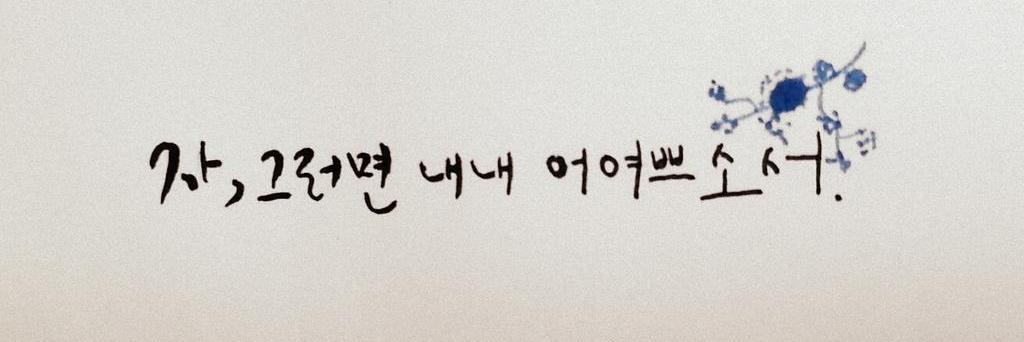 자, 그러면 내내 어여쁘소서.